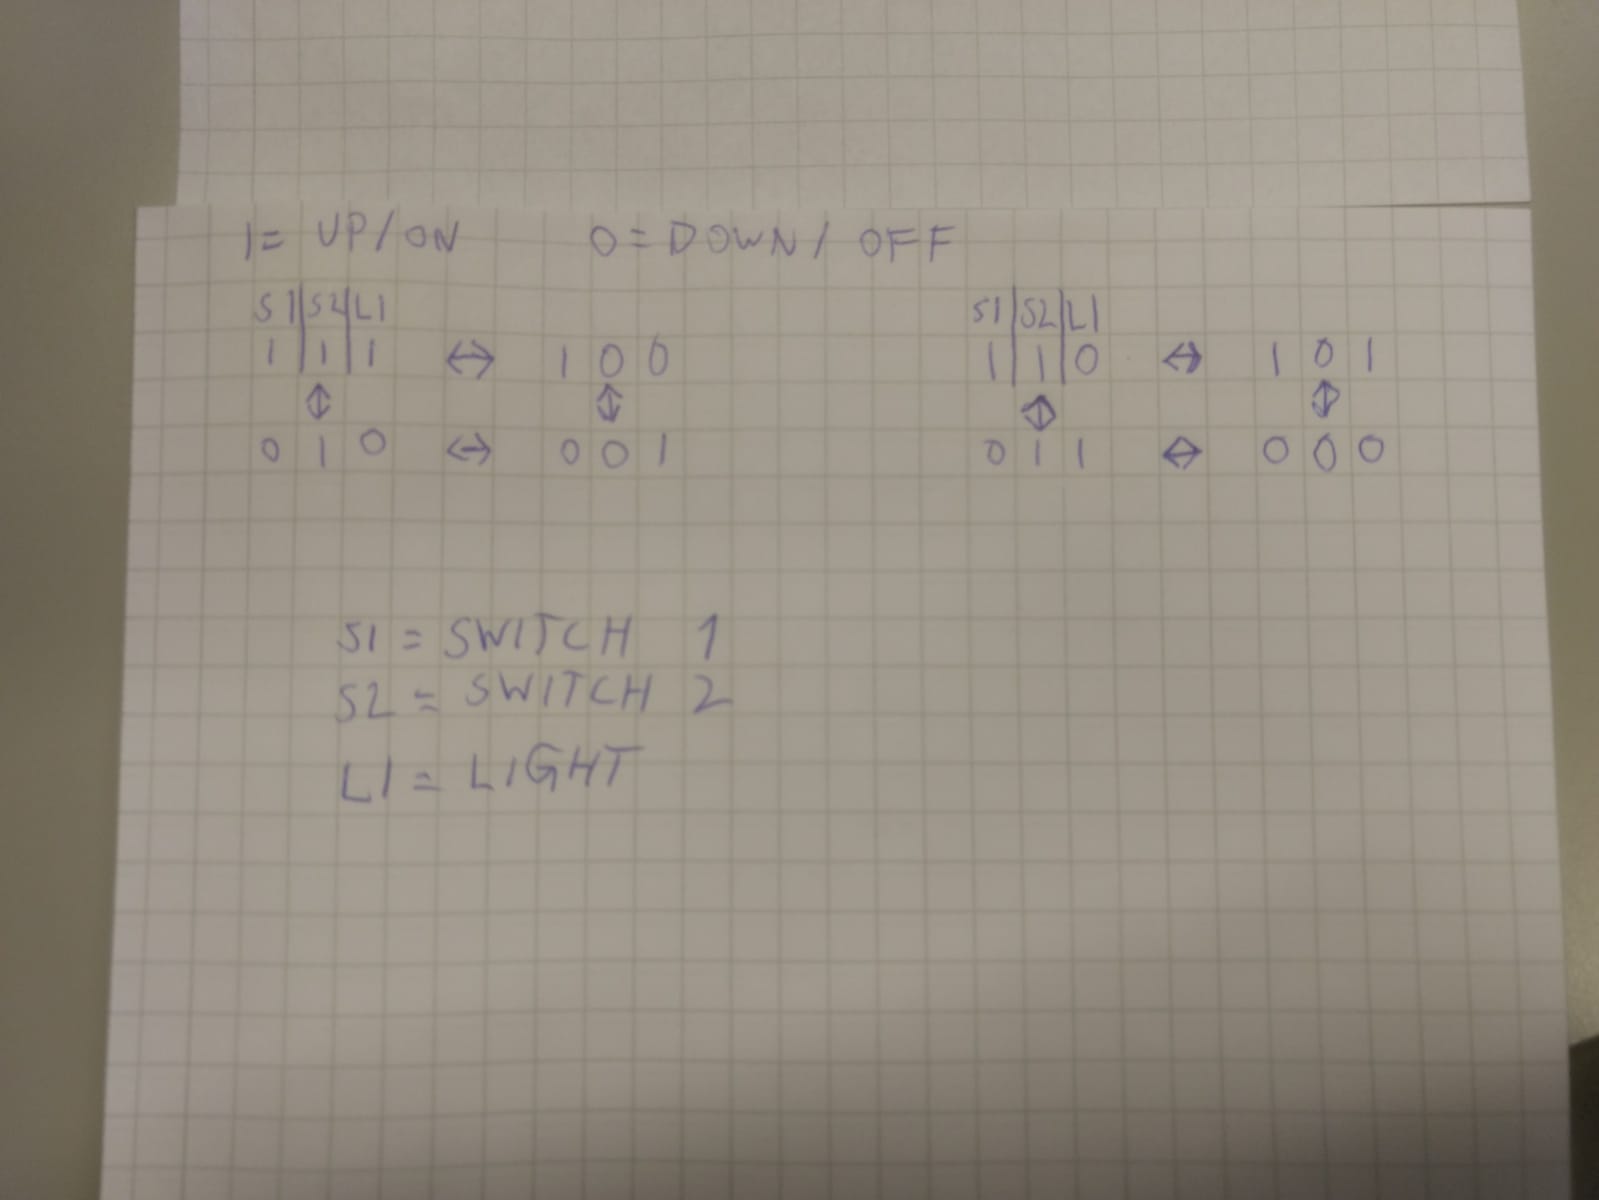 1= UP/ON 0= DOWN/ OFF
S1|S2|L1 S1|S2|L1
1|1|1 ↔ 1 0 0 1|1|0 ↔ 1 0 1
↕ ↕ ↕ ↕
0 1 0 ↔ 0 0 1 0 1 1 ↔ 0 0 0
S1 = SWITCH 1
S2 = SWITCH 2
L1 = LIGHT